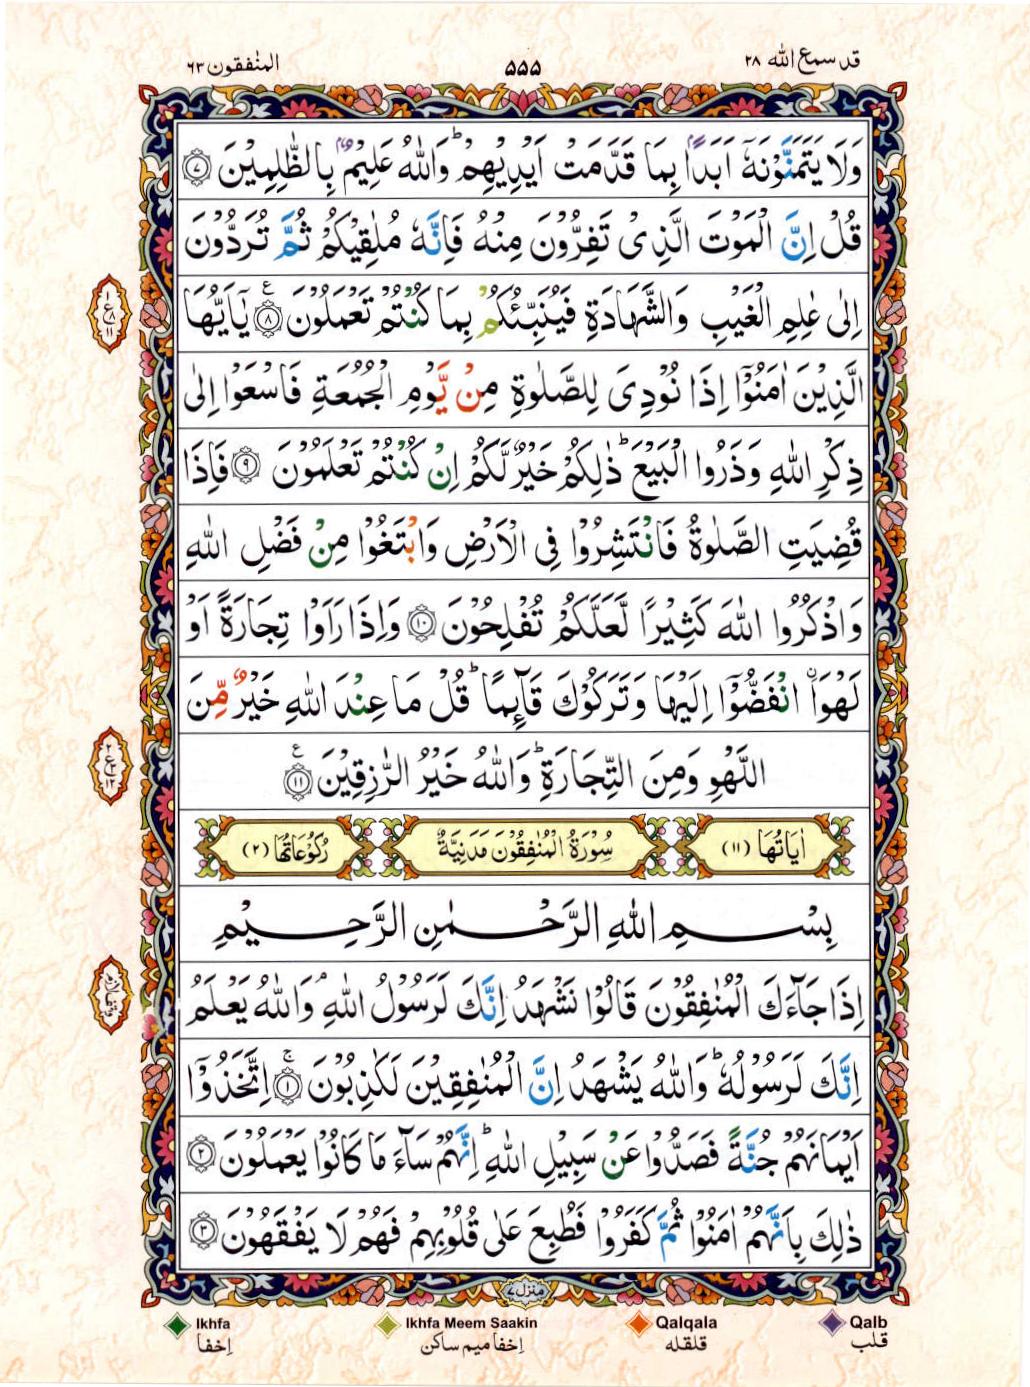 المنٰفقون ٦٣
۵۵۵
قد سمع الله ٢٨
وَلَا يَتَمَنَّوْنَهٗٓ اَبَدًاۢ بِمَا قَدَّمَتْ اَيْدِيْهِمْ ؕ وَاللّٰهُ عَلِيْمٌۢ بِالظّٰلِمِيْنَ ۝٧
قُلْ اِنَّ الْمَوْتَ الَّذِىْ تَفِرُّوْنَ مِنْهُ فَاِنَّهٗ مُلٰقِيْكُمْ ثُمَّ تُرَدُّوْنَ
اِلٰى عٰلِمِ الْغَيْبِ وَالشَّهَادَةِ فَيُنَبِّئُكُمْ بِمَا كُنْتُمْ تَعْمَلُوْنَ ۝٨ ع يٰٓاَيُّهَا
الَّذِيْنَ اٰمَنُوْٓا اِذَا نُوْدِىَ لِلصَّلٰوةِ مِنْ يَّوْمِ الْجُمُعَةِ فَاسْعَوْا اِلٰى
ذِكْرِ اللّٰهِ وَذَرُوا الْبَيْعَ ؕ ذٰلِكُمْ خَيْرٌ لَّكُمْ اِنْ كُنْتُمْ تَعْلَمُوْنَ ۝٩ فَاِذَا
قُضِيَتِ الصَّلٰوةُ فَانْتَشِرُوْا فِى الْاَرْضِ وَابْتَغُوْا مِنْ فَضْلِ اللّٰهِ
وَاذْكُرُوا اللّٰهَ كَثِيْرًا لَّعَلَّكُمْ تُفْلِحُوْنَ ۝١٠ وَاِذَا رَاَوْا تِجَارَةً اَوْ
لَهْوَا۟ ۨانْفَضُّوْٓا اِلَيْهَا وَتَرَكُوْكَ قَآئِمًا ؕ قُلْ مَا عِنْدَ اللّٰهِ خَيْرٌ مِّنَ
اللَّهْوِ وَمِنَ التِّجَارَةِ ؕ وَاللّٰهُ خَيْرُ الرّٰزِقِيْنَ ۝١١ ع
اٰيَاتُهَا (١١)
سُوْرَةُ الْمُنٰفِقُوْنَ مَدَنِيَّةٌ
رُكُوْعَاتُهَا (٢)
بِسْمِ اللّٰهِ الرَّحْمٰنِ الرَّحِيْمِ
اِذَا جَآءَكَ الْمُنٰفِقُوْنَ قَالُوْا نَشْهَدُ اِنَّكَ لَرَسُوْلُ اللّٰهِ ۘ وَاللّٰهُ يَعْلَمُ
اِنَّكَ لَرَسُوْلُهٗ ؕ وَاللّٰهُ يَشْهَدُ اِنَّ الْمُنٰفِقِيْنَ لَكٰذِبُوْنَ ۝١ۚ اِتَّخَذُوْٓا
اَيْمَانَهُمْ جُنَّةً فَصَدُّوْا عَنْ سَبِيْلِ اللّٰهِ ؕ اِنَّهُمْ سَآءَ مَا كَانُوْا يَعْمَلُوْنَ ۝٢
ذٰلِكَ بِاَنَّهُمْ اٰمَنُوْا ثُمَّ كَفَرُوْا فَطُبِعَ عَلٰى قُلُوْبِهِمْ فَهُمْ لَا يَفْقَهُوْنَ ۝٣
منزل ٧
Ikhfa
اِخفا
Ikhfa Meem Saakin
اِخفا میم ساکن
Qalqala
قلقله
Qalb
قلب